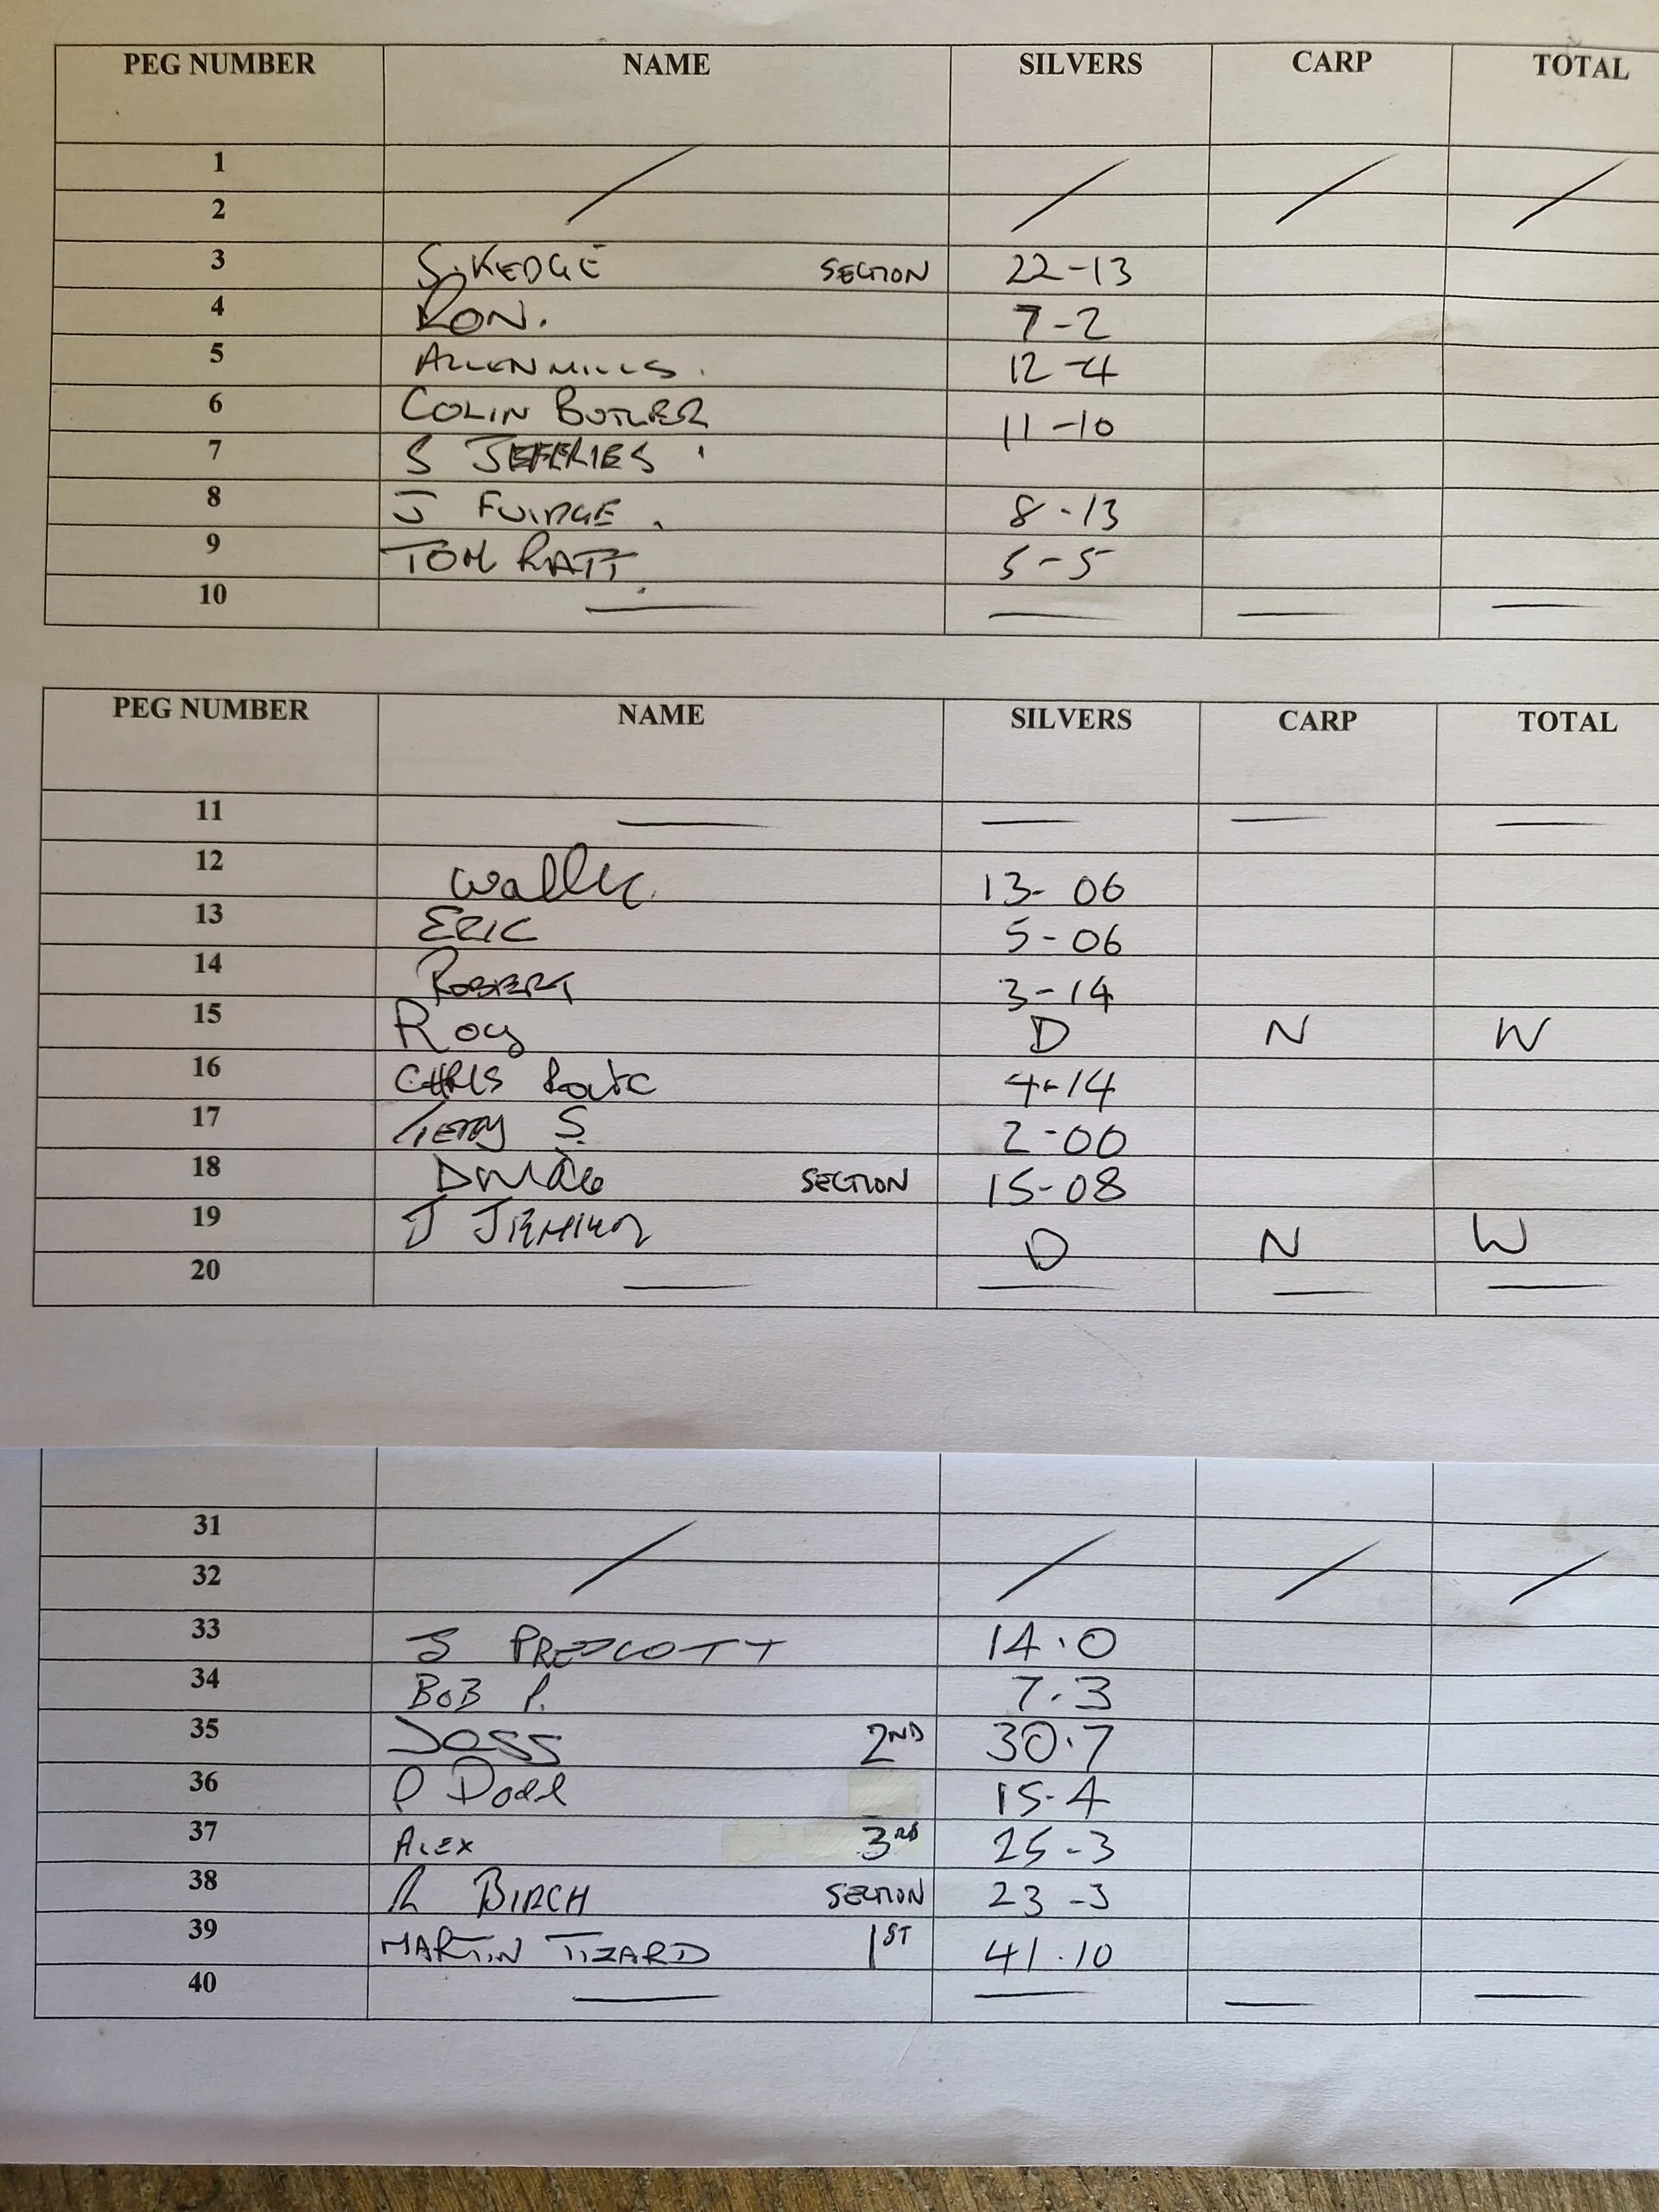 PEG NUMBER NAME SILVERS CARP TOTAL
1
2
3 S. KEDGE SECTION 22-13
4 RON. 7-2
5 ALLEN MILLS. 12-4
6 COLIN BUTLER 11-10
7 S JEFFERIES
8 J FUIDGE. 8-13
9 TOM RATT 5-5
10
PEG NUMBER NAME SILVERS CARP TOTAL
11
12 13-06
13 ERIC 5-06
14 ROBERT 3-14
15 Roy D N W
16 CHRIS 4-14
17 Terry S. 2-00
18 SECTION 15-08
19 J D N W
20
31
32
33 S PRESCOTT 14.0
34 BOB P. 7.3
35 JOSS 2ND 30.7
36 P Dodd 15-4
37 ALEX 3RD 25-3
38 R BIRCH SECTION 23-3
39 MARTIN TIZARD 1ST 41.10
40